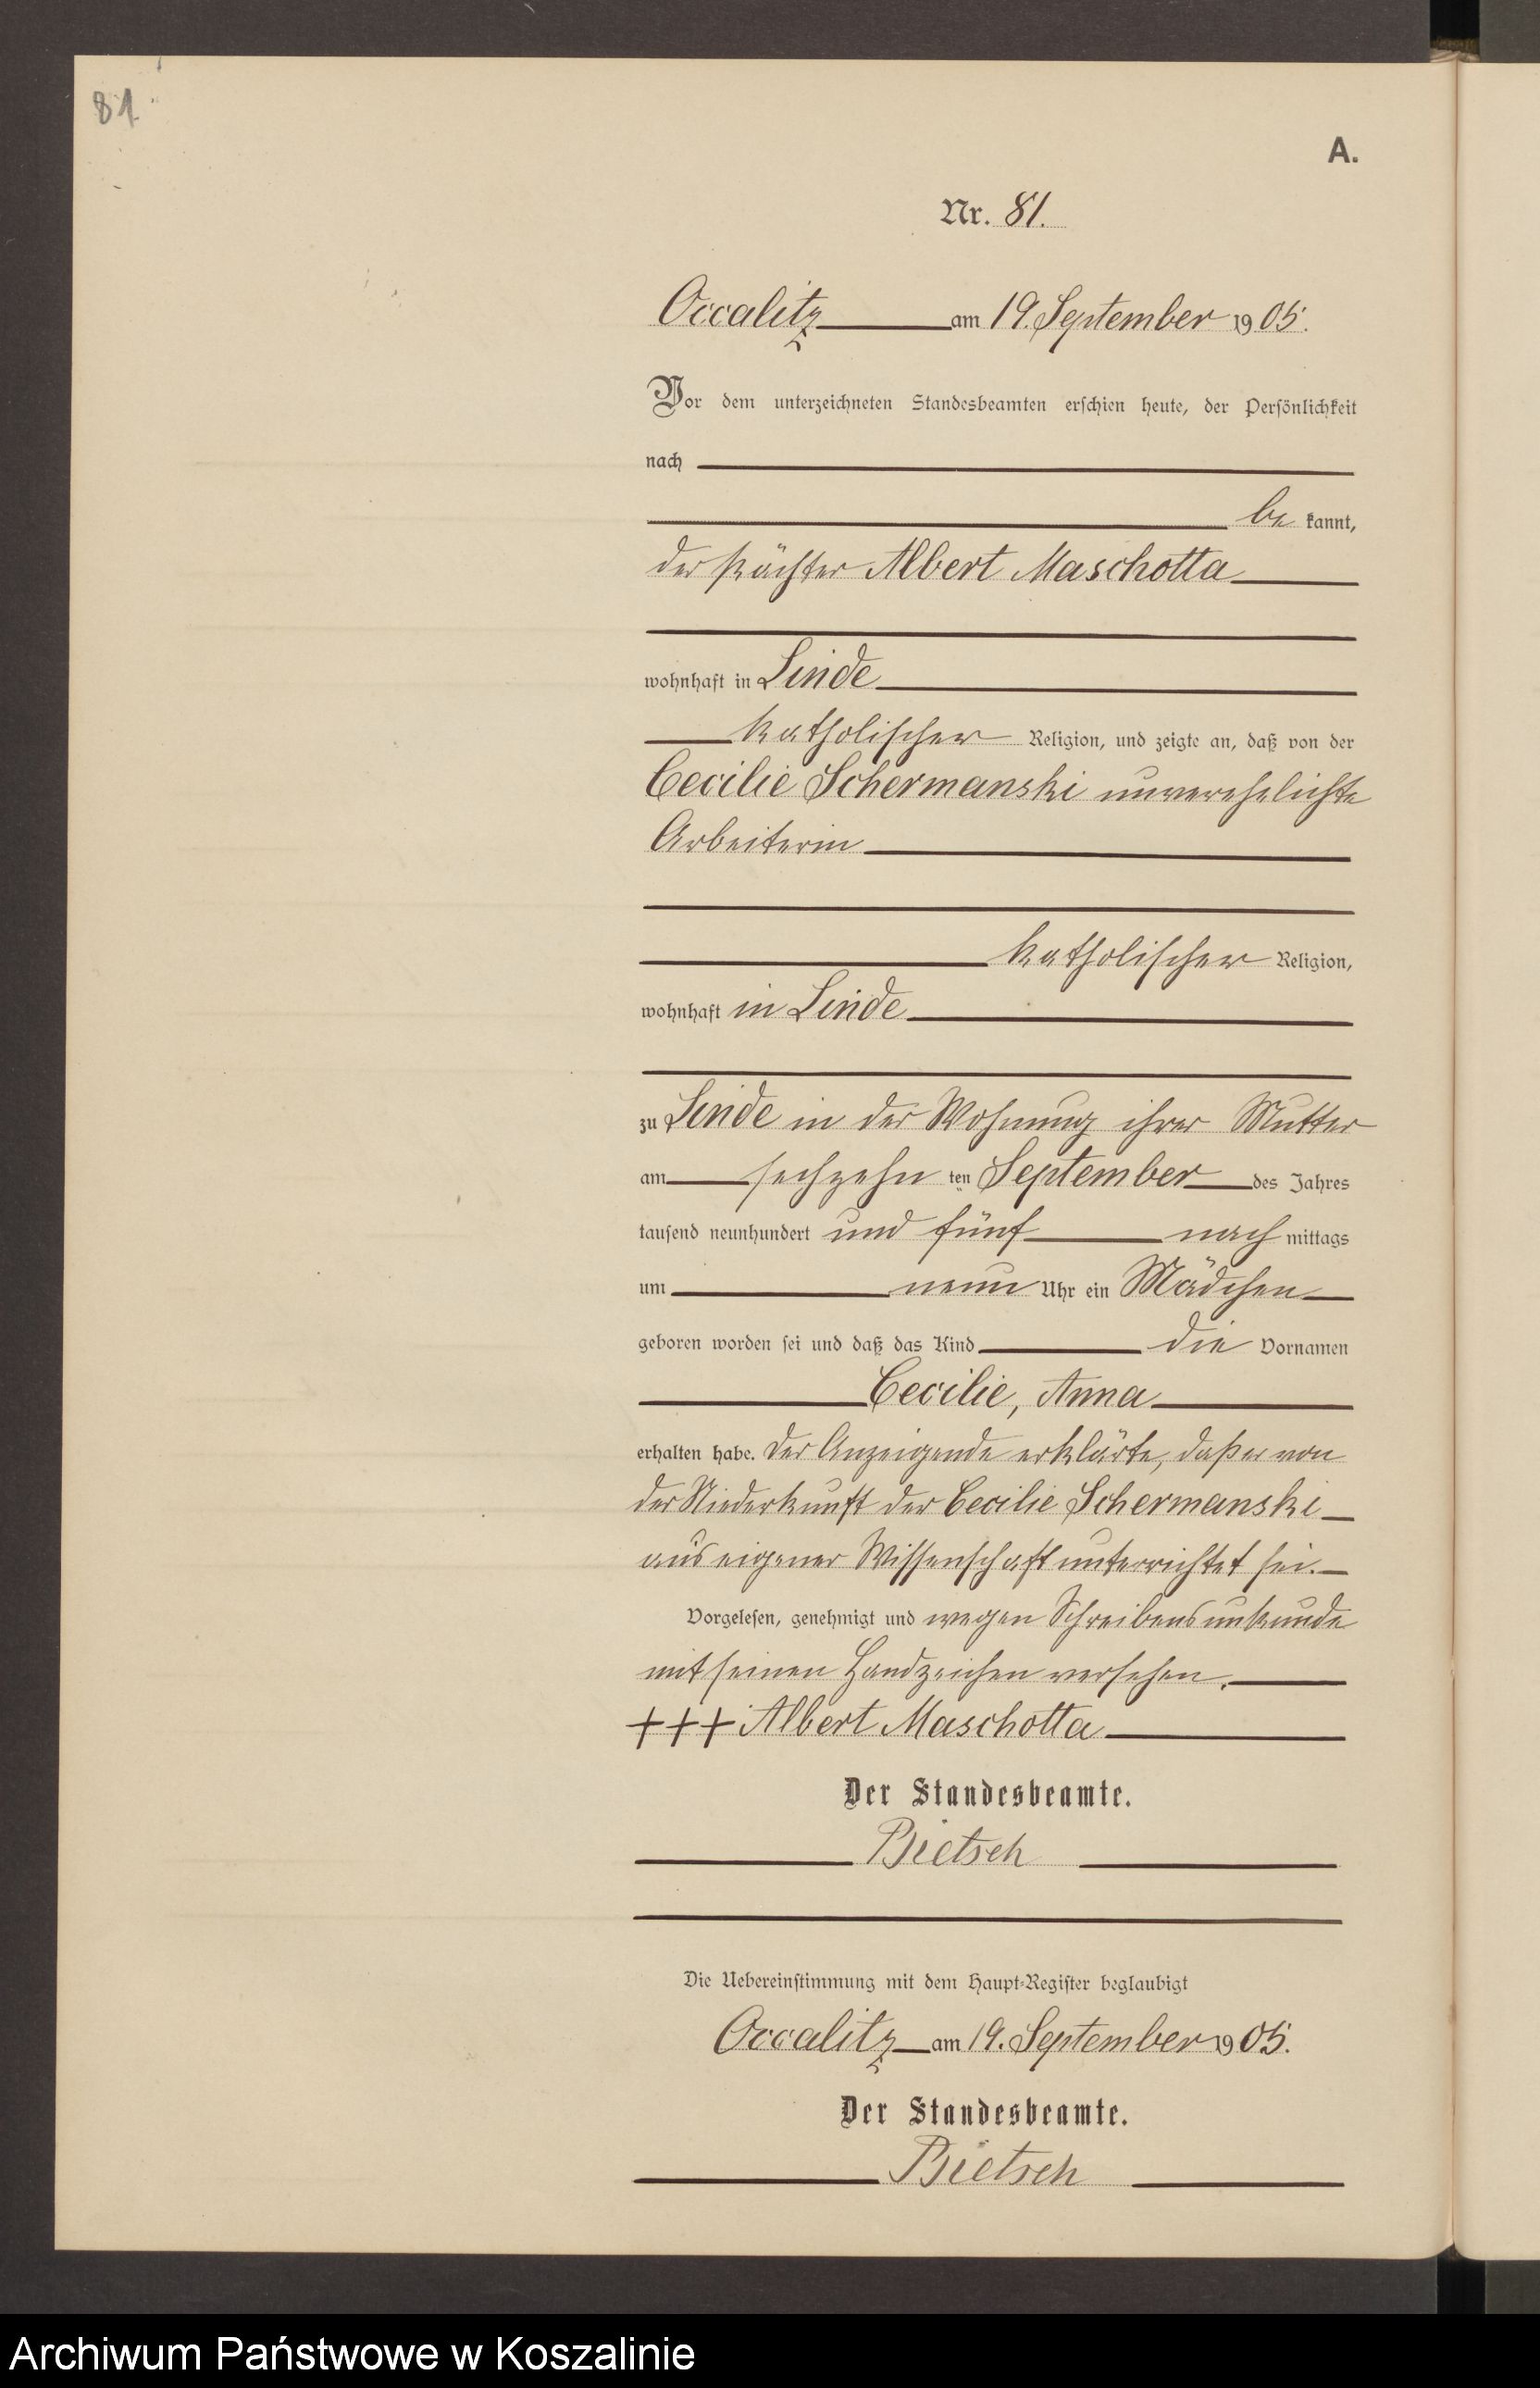 81
A.
Nr. 81.
Occalitz am 19. September 1905.
Vor dem unterzeichneten Standesbeamten erschien heute, der Persönlichkeit
nach
be kannt,
der Pächter Albert Maschotta
wohnhaft in Linde
katholischer Religion, und zeigte an, daß von der
Cecilie Schermanski unverehelichte
Arbeiterin
katholischer Religion,
wohnhaft in Linde
zu Linde in der Wohnung ihrer Mutter
am sechzehn ten September des Jahres
tausend neunhundert und fünf nach mittags
um neun Uhr ein Mädchen
geboren worden sei und daß das Kind die Vornamen
Cecilie, Anna
erhalten habe. Der Anzeigende erklärte, daß er von
der Niederkunft der Cecilie Schermanski
aus eigener Wissenschaft unterrichtet sei.
Vorgelesen, genehmigt und wegen Schreibensunkunde
mit seinen Handzeichen versehen.
+++ Albert Maschotta
Der Standesbeamte.
Bietsch
Die Uebereinstimmung mit dem Haupt-Register beglaubigt
Occalitz am 19. September 1905.
Der Standesbeamte.
Bietsch
Archiwum Państwowe w Koszalinie